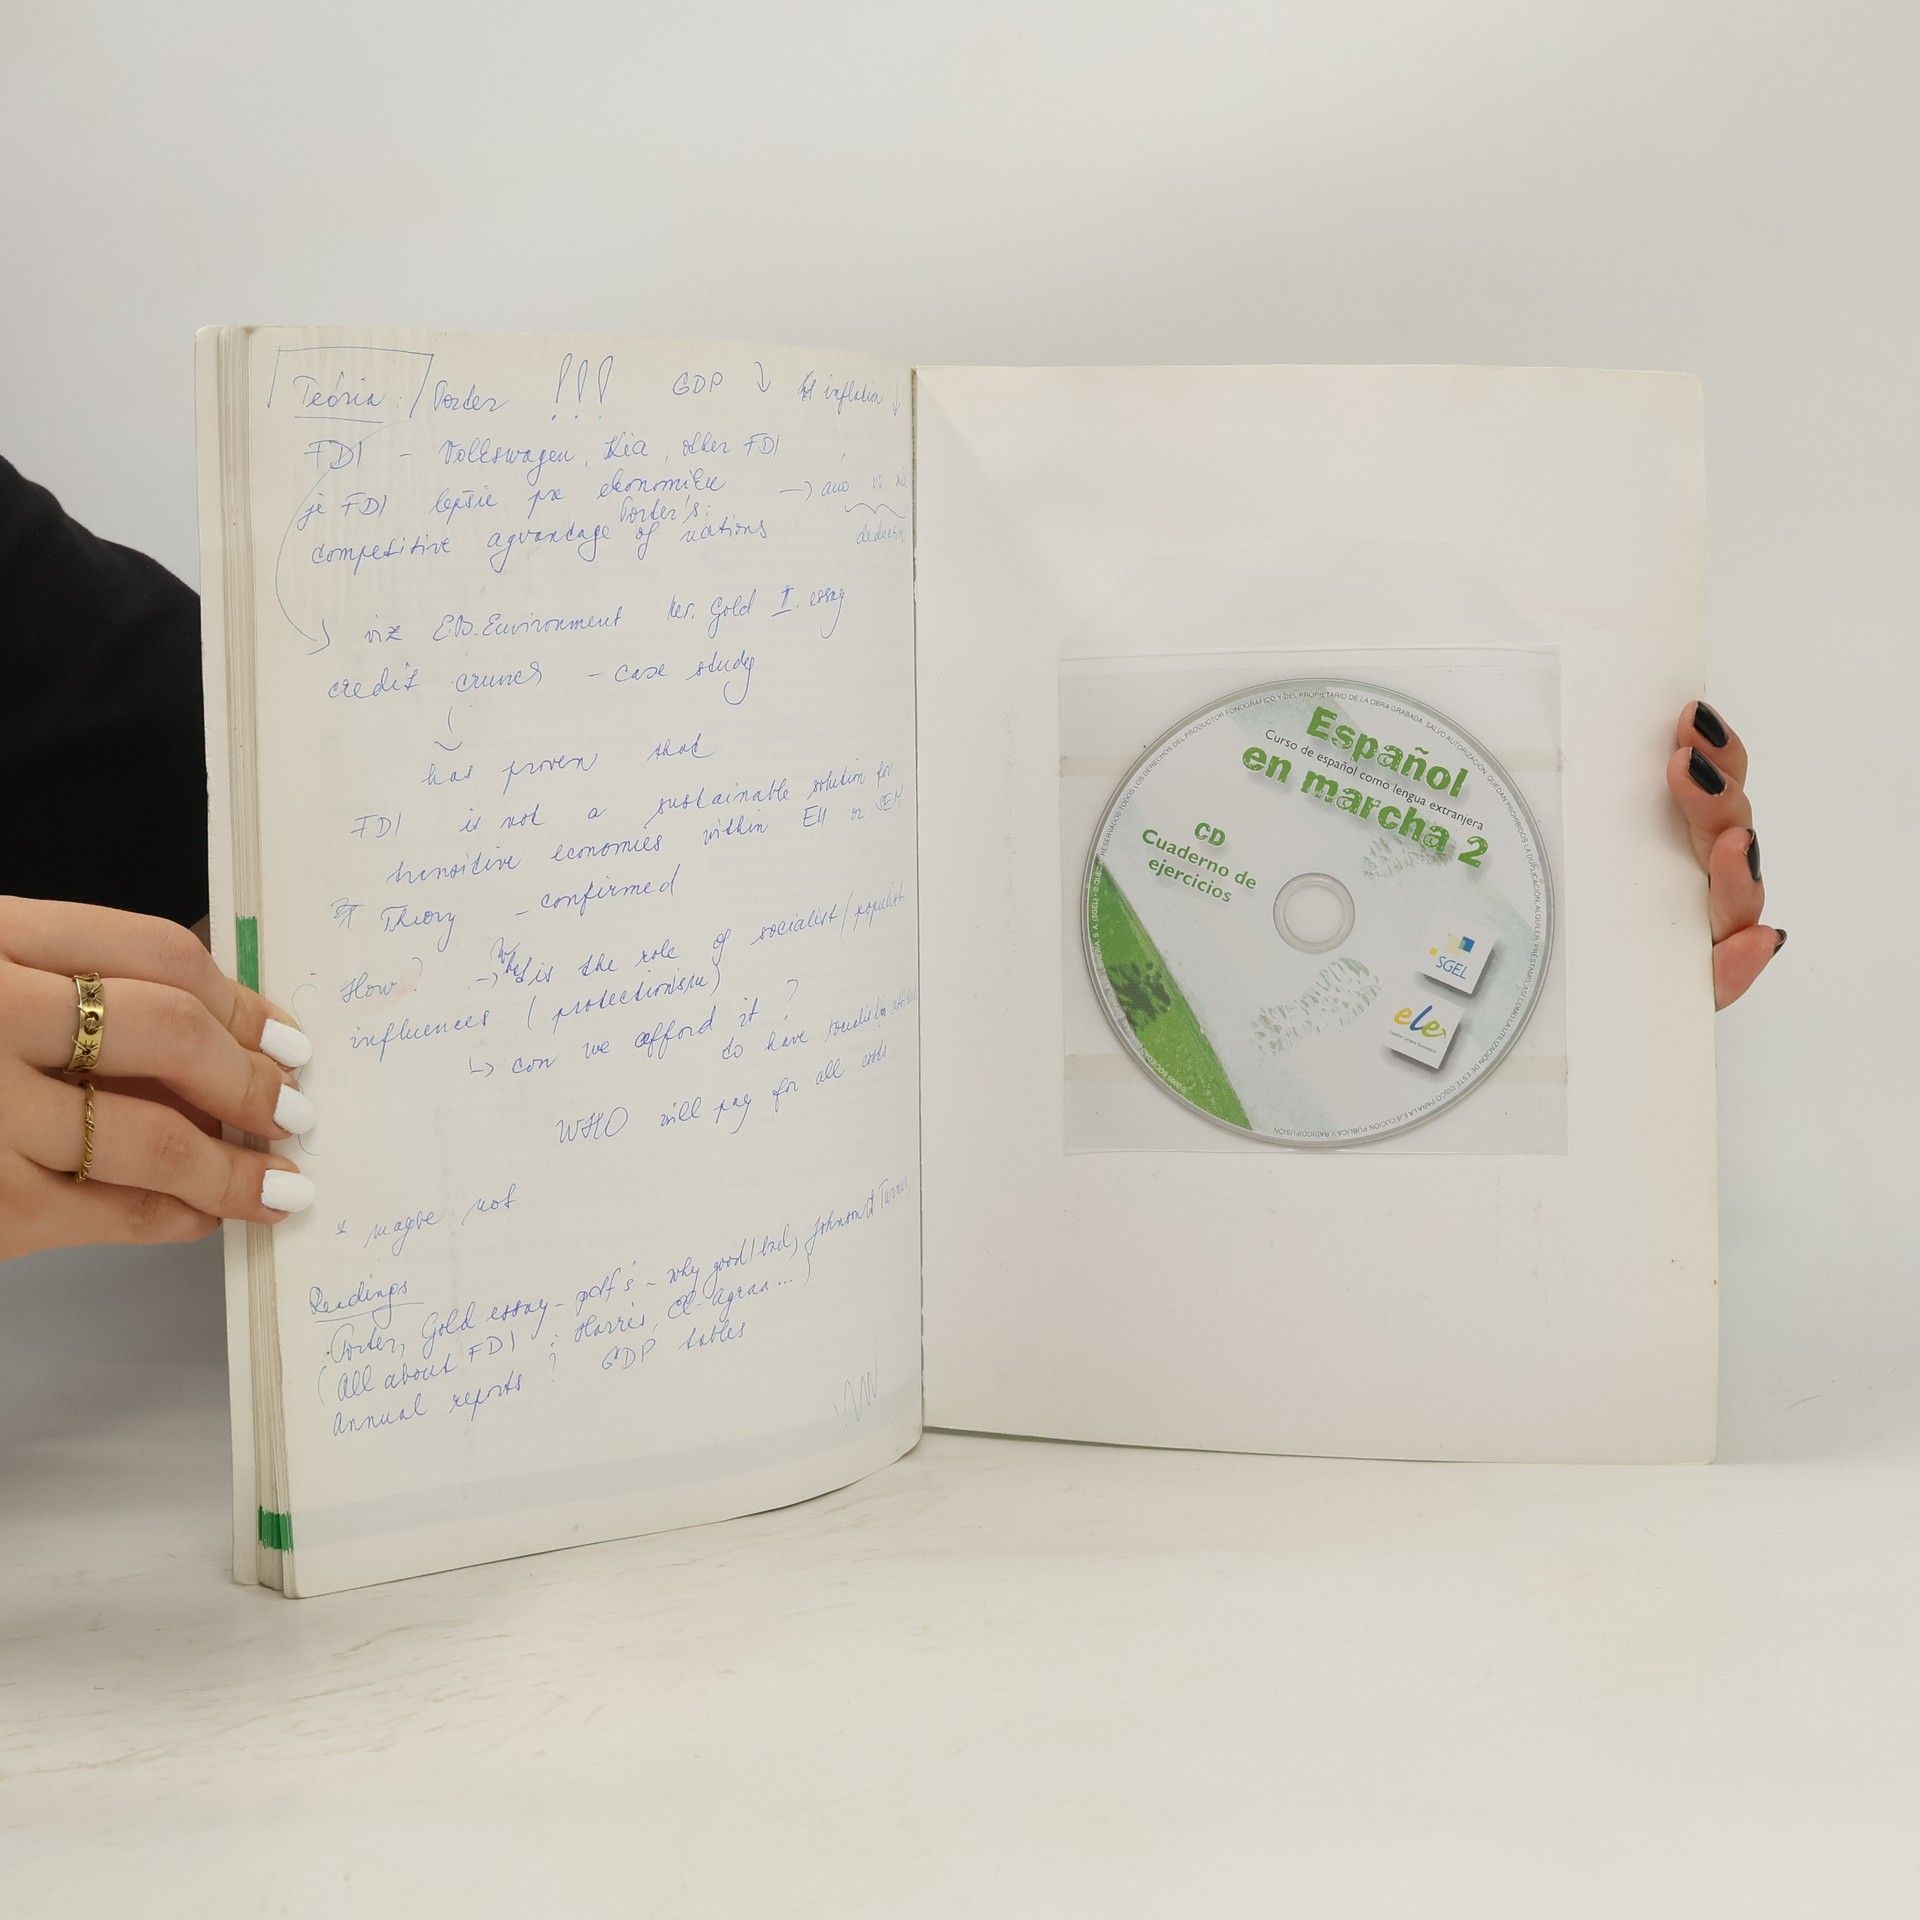 Teória : Porter !!! GDP ↓ inflation ↓
FDI - Volkswagen, Kia, other FDI
je FDI lepšie pre ekonomiku → áno vs. nie
Porter's:
competitive agvantage of nations
viz E.B.Environment Gold II. essay
credit crunch - case study
has proven that
FDI is not a sustainable solution for
transitive economies within EU or SEM
* Theory - confirmed
How? → What is the role of socialist/populist
influences (protectionism)
↳ can we afford it?
to have
WHO will pay for all costs
* maybe not
Readings
Porter, Gold essay - pdf's - why good/bad, Johnson & Turner,
(All about FDI : Harris, El-Agraa...)
Annual reports ? GDP tables
Español
Curso de español como lengua extranjera
en marcha 2
CD
Cuaderno de
ejercicios
SGEL
ele
RESERVADOS TODOS LOS DERECHOS DEL PRODUCTOR FONOGRÁFICO Y DEL PROPIETARIO DE LA OBRA GRABADA. SALVO AUTORIZACIÓN, QUEDAN PROHIBIDOS LA DUPLICACIÓN, ALQUILER, PRÉSTAMO, ASÍ COMO LA UTILIZACIÓN DE ESTE DISCO PARA LA EJECUCIÓN PÚBLICA Y RADIODIFUSIÓN